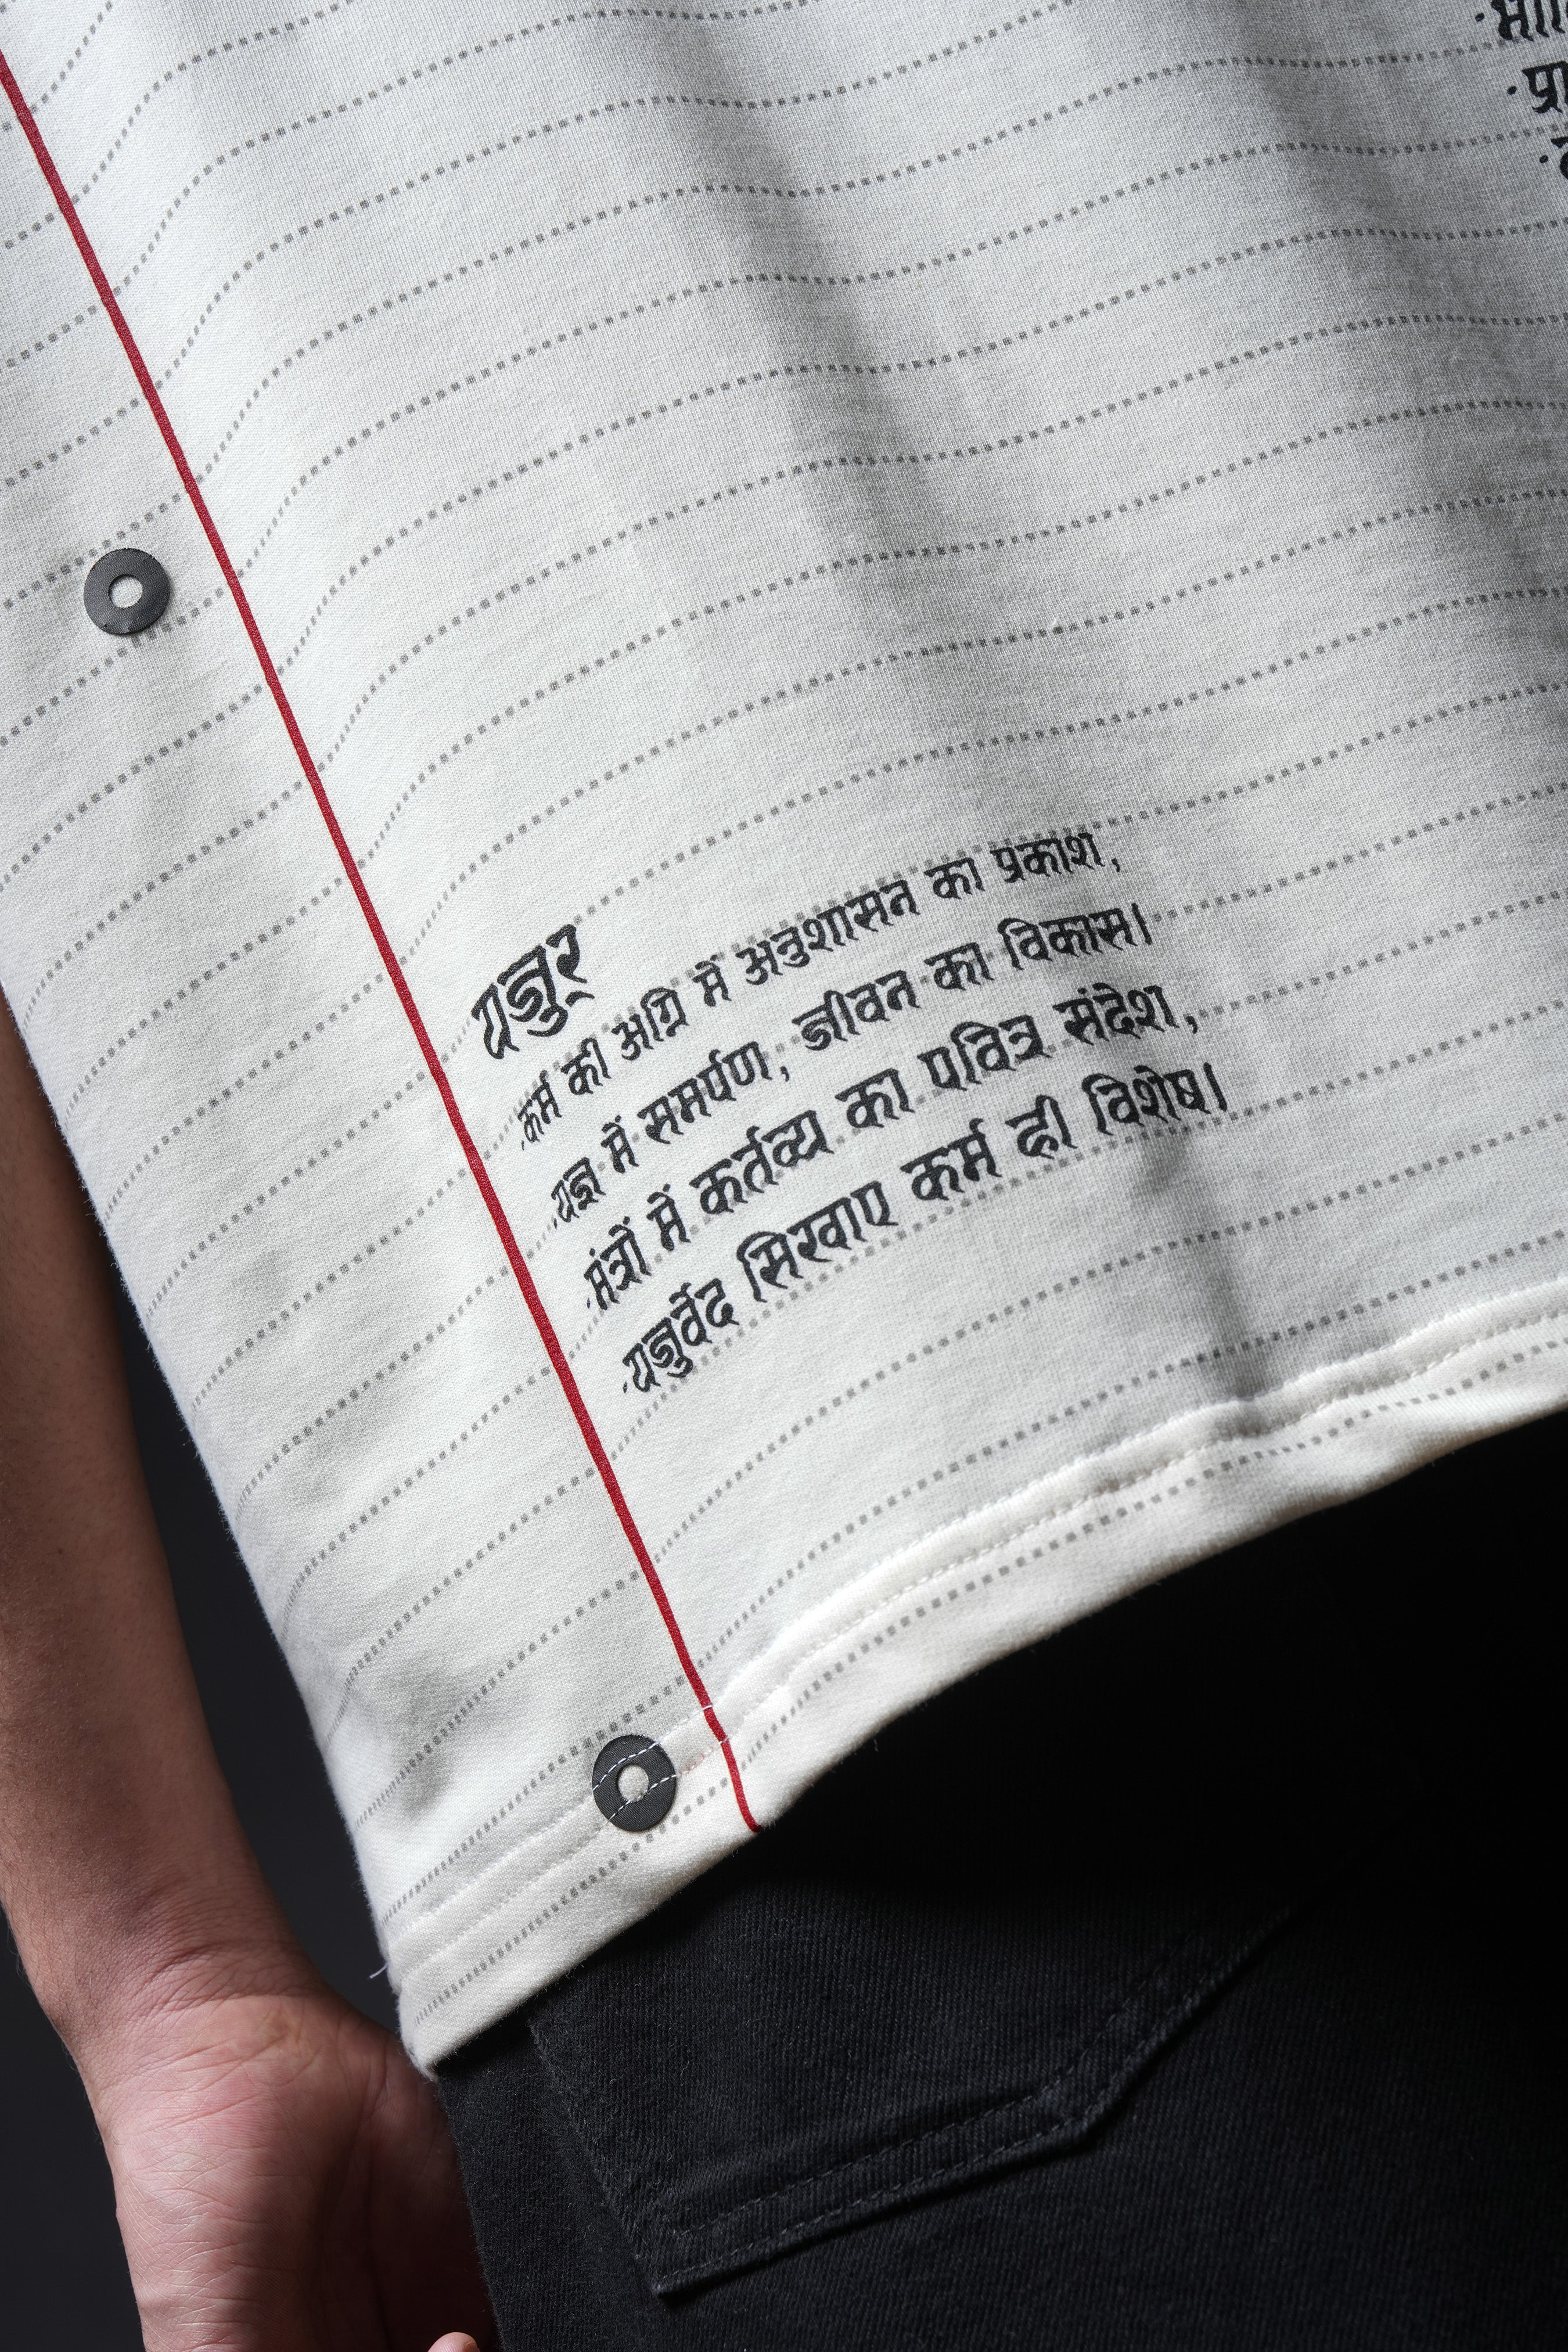 यजुर्
·कर्म की अग्नि में अनुशासन का प्रकाश,
·यज्ञ में समर्पण, जीवन का विकास।
·मंत्रों में कर्तव्य का पवित्र संदेश,
·यजुर्वेद सिखाए कर्म ही विशेष।